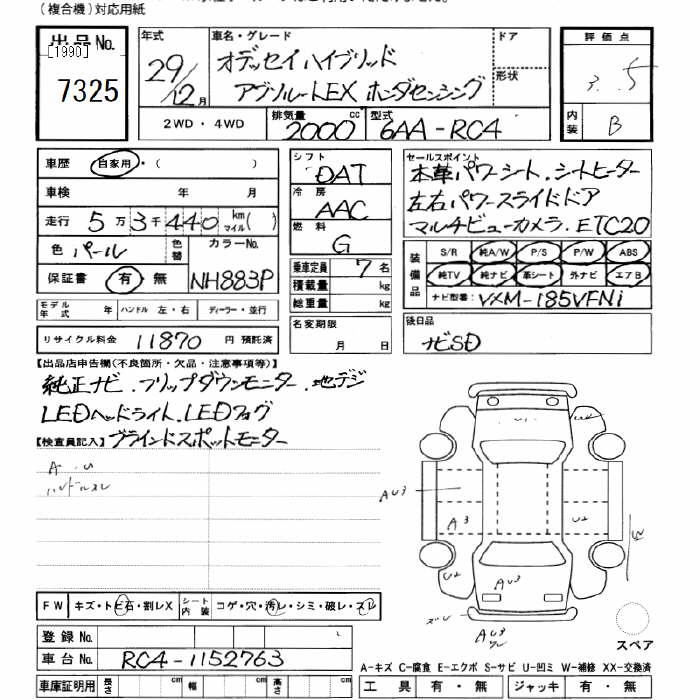 (複合機)対応用紙
出品No. [1990] 7325
年式 29/12月
車名・グレード オデッセイハイブリッド
アブソルートEX ホンダセンシング
ドア
形状
評価点 3.5
内装 B
2WD・4WD 排気量 2000cc 型式 6AA-RC4
車歴 自家用・( )
車検 年 月
走行 5万3千440km マイル( )
色 パール 色替 カラーNo. NH883P
保証書 有・無
モデル年式 年 ハンドル 左・右 ディーラー・並行
リサイクル料金 11870円 預託済
シフト DAT
冷房 AAC
燃料 G
乗車定員 7名
積載量 kg
総重量 kg
名変期限 月 日
セールスポイント
本革パワーシート、シートヒーター
左右パワースライドドア
マルチビューカメラ.ETC20
装備品 S/R 純A/W P/S P/W ABS
純TV 純ナビ 革シート 外ナビ エアB
ナビ型番: VXM-185VFNi
後日品 ナビSD
【出品店申告欄(不良箇所・欠品・注意事項等)】
純正ナビ.フリップダウンモニター.地デジ
LEDヘッドライト.LEDフォグ
【検査員記入】ブラインドスポットモニター
A.U
ハンドルスレ
AU3
A3
U2
U2
AU3
AU3
W
FW キズ・トビ石・割レX シート内装 コゲ・穴・汚レ・シミ・破レ・スレ
登録No.
車台No. RC4-1152763
車庫証明用 長さ cm 幅 cm 高さ cm
スペア
A-キズ C-腐食 E-エクボ S-サビ U-凹ミ W-補修 XX-交換済
工具 有・無 ジャッキ 有・無